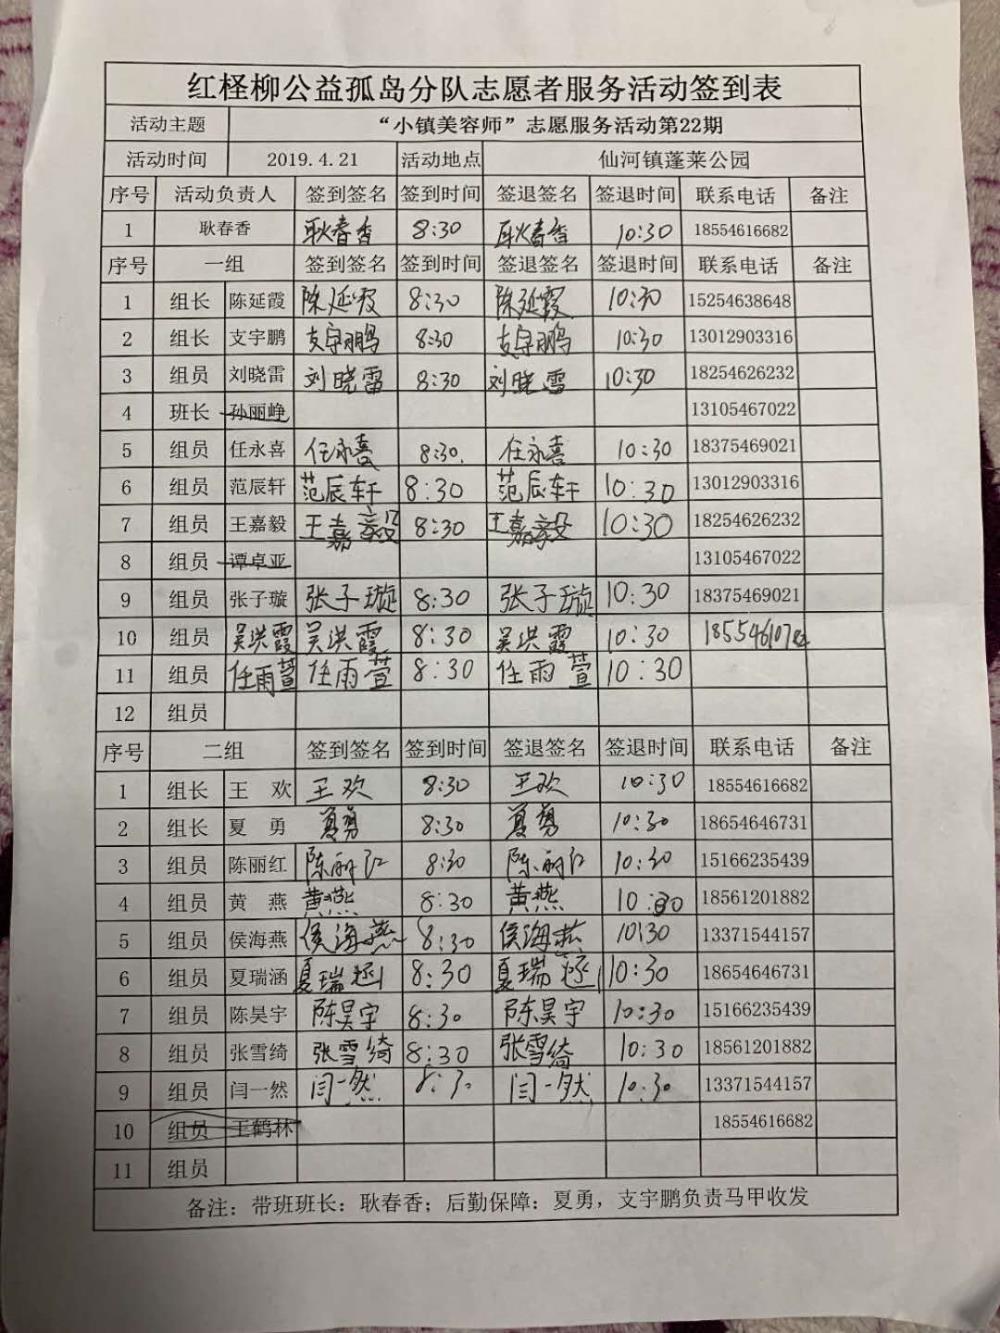 红柽柳公益孤岛分队志愿者服务活动签到表
活动主题 “小镇美容师”志愿服务活动第22期
活动时间 2019.4.21 活动地点 仙河镇蓬莱公园
序号 活动负责人 签到签名 签到时间 签退签名 签退时间 联系电话 备注
1 耿春香 耿春香 8:30 耿春香 10:30 18554616682
序号 一组 签到签名 签到时间 签退签名 签退时间 联系电话 备注
1 组长 陈延霞 陈延霞 8:30 陈延霞 10:30 15254638648
2 组长 支宇鹏 支宇鹏 8:30 支宇鹏 10:30 13012903316
3 组员 刘晓雷 刘晓雷 8:30 刘晓雷 10:30 18254626232
4 班长 孙丽峥 13105467022
5 组员 任永喜 任永喜 8:30. 任永喜 10:30 18375469021
6 组员 范辰轩 范辰轩 8:30 范辰轩 10:30 13012903316
7 组员 王嘉毅 王嘉毅 8:30 王嘉毅 10:30 18254626232
8 组员 谭卓亚 13105467022
9 组员 张子璇 张子璇 8:30 张子璇 10:30 18375469021
10 组员 吴洪霞 吴洪霞 8:30 吴洪霞 10:30
11 组员 任雨萱 任雨萱 8:30 任雨萱 10:30
12 组员
序号 二组 签到签名 签到时间 签退签名 签退时间 联系电话 备注
1 组长 王 欢 王欢 8:30 王欢 10:30 18554616682
2 组长 夏 勇 夏勇 8:30 夏勇 10:30 18654646731
3 组员 陈丽红 陈丽红 8:30 陈丽红 10:30 15166235439
4 组员 黄 燕 黄燕 8:30 黄燕 10:30 18561201882
5 组员 侯海燕 侯海燕 8:30 侯海燕 10:30 13371544157
6 组员 夏瑞涵 夏瑞涵 8:30 夏瑞涵 10:30 18654646731
7 组员 陈昊宇 陈昊宇 8:30 陈昊宇 10:30 15166235439
8 组员 张雪绮 张雪绮 8:30 张雪绮 10:30 18561201882
9 组员 闫一然 闫一然 8:30 闫一然 10:30 13371544157
10 组员 王鹤林 18554616682
11 组员
备注：带班班长：耿春香；后勤保障：夏勇，支宇鹏负责马甲收发